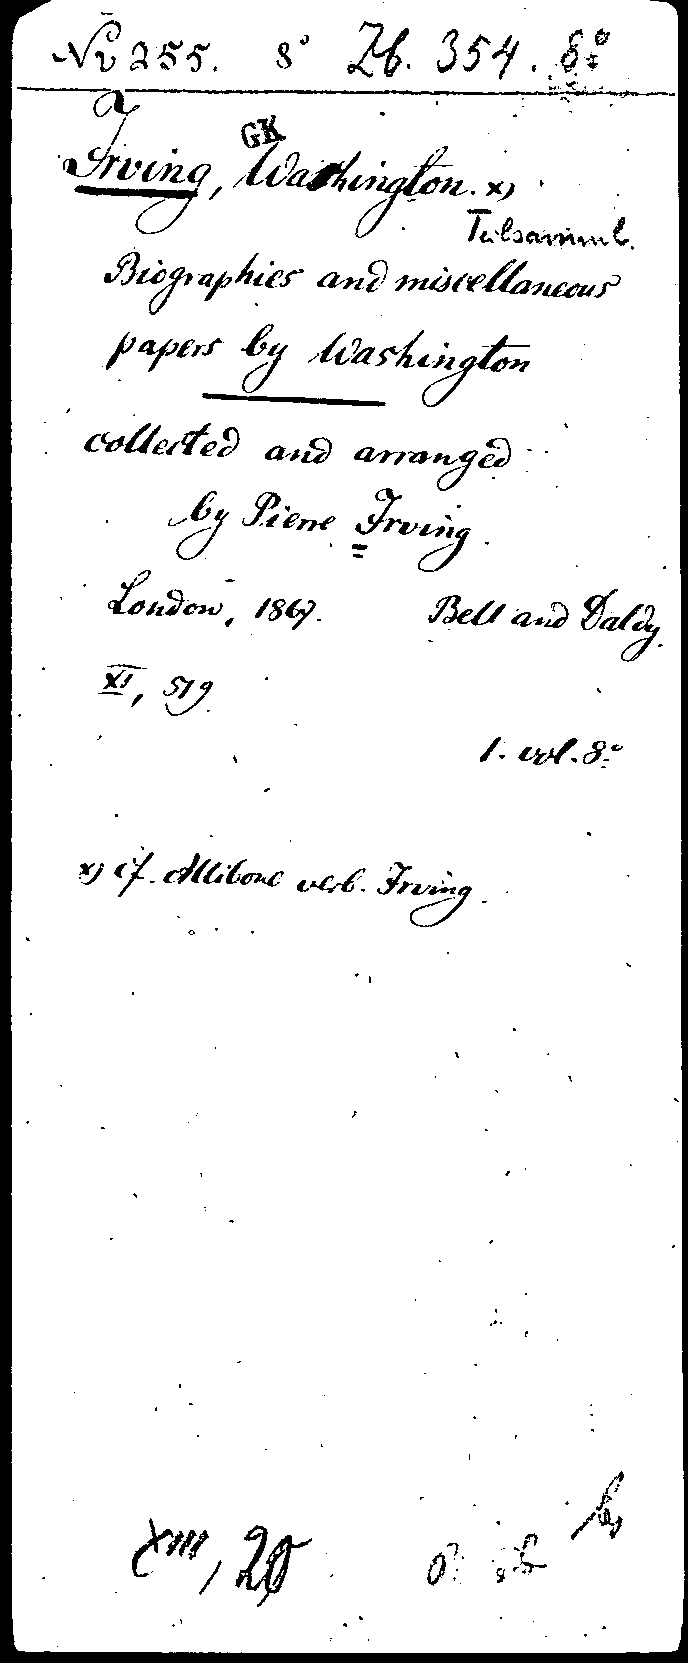 Nv 255. 8° Zb. 354. 8°
GK
Irving, Washington. x)
Teilsamml.
Biographies and miscellaneous
papers by Washington
collected and arranged
by Pierre Irving.
London, 1867. Bell and Daldy.
XI, 519
1. vol. 8°
x) cf. Allibone verb. Irving.
XIII, 20